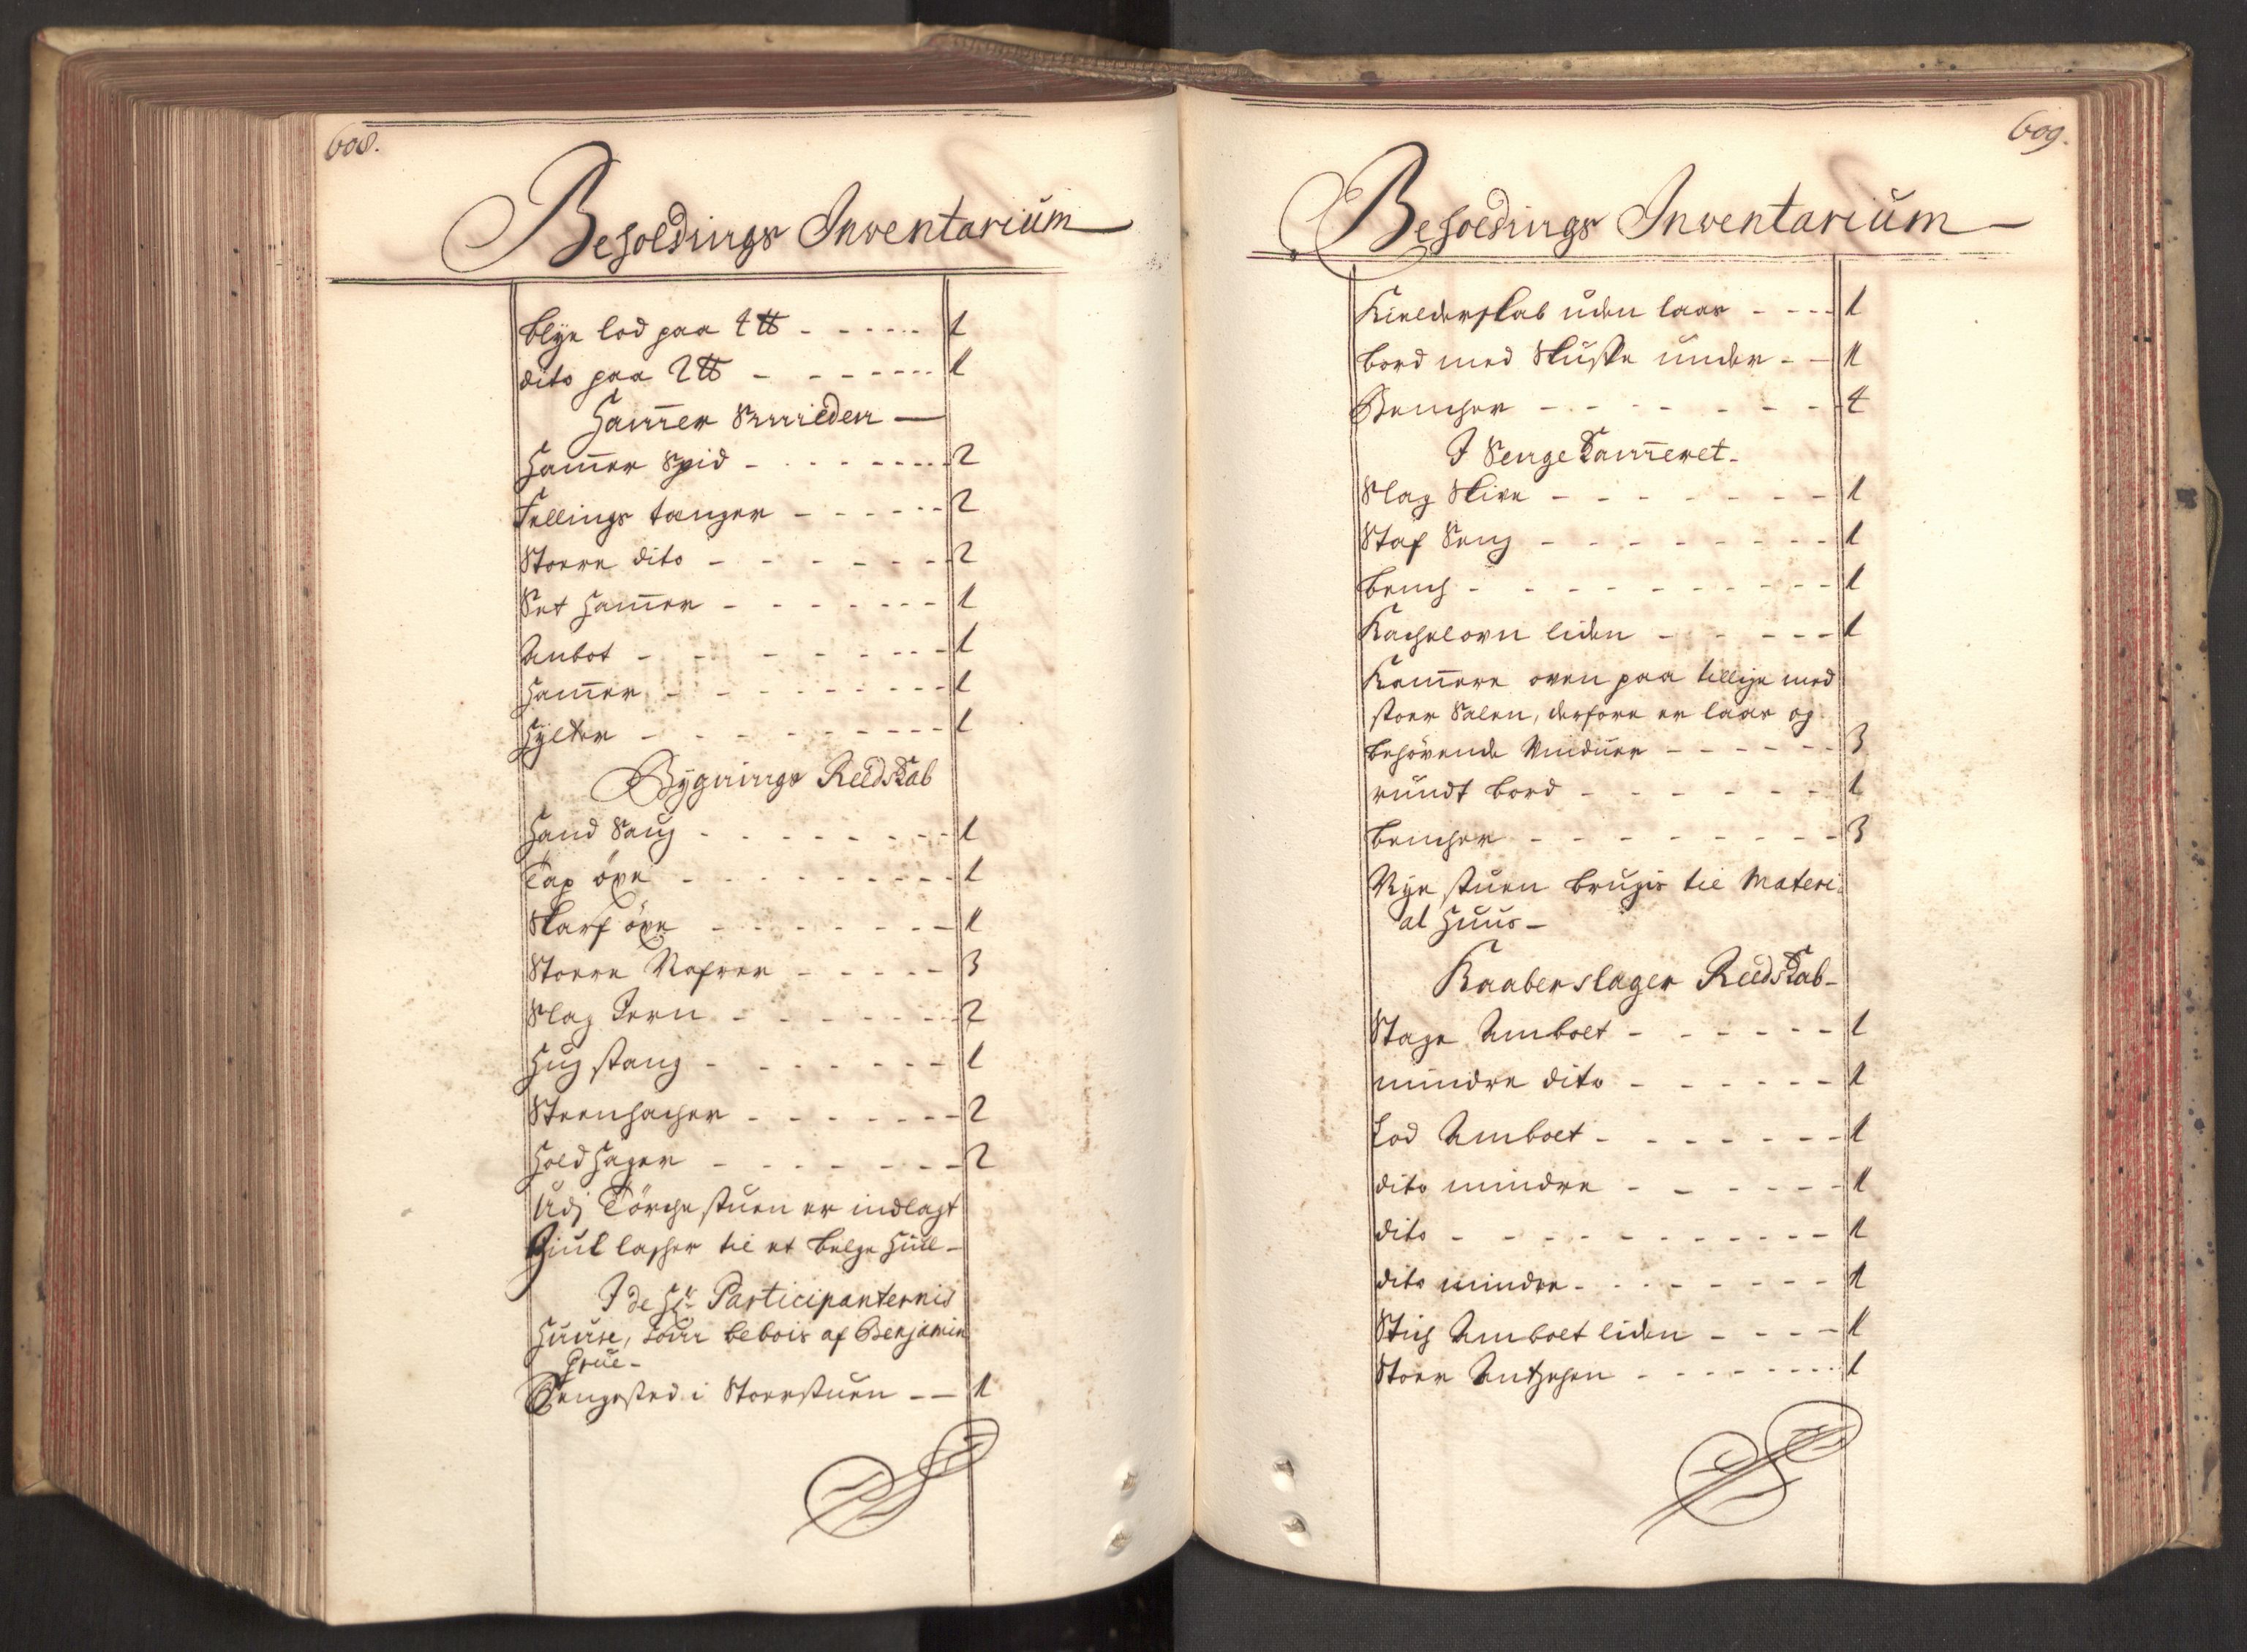 608.
Beholdings Inventarium
Blye lod paa 4 ℔ - - - - - 1
dito paa 2 ℔ - - - - - 1
Ham̄er Smieden —
Ham̄er Spid - - - - - 2
Fellings tanger - - - - - 2
Stoere dito - - - - - 2
Set Ham̄er - - - - - 1
Anbot - - - - - 1
Ham̄er - - - - - 1
Hylter - - - - - 1
Bygnings Reedskab
Hand Saug - - - - - 1
Tap öxe - - - - - 1
Skarf öxe - - - - - 1
Stoere Nafrer - - - - - 3
Slag Jern - - - - - 2
Hug stang - - - - - 1
Steenhacher - - - - - 2
Hold Hager - - - - - 2
Udj Törche stuen er indlagt
Hiul lascher til et belge Huul -
I de Hr Participanternis
Huuse, som bebois af Benjamin
Grue -
Sengested i Storstuen - - 1
609.
Beholdings Inventarium -
Kielderskab uden laas - - - - 1
bord med Skuffe under - - 1
Bencher - - - - - 4
I Senge Kam̄eret -
Slag Skive - - - - - 1
Staf Seng - - - - - 1
bench - - - - - 1
Kachelovn liden - - - - - 1
Kam̄ere oven paa tillige med
stoer Salen, derfore er laas og
behövende Vinduer - - - - - 3
rundt bord - - - - - 1
bencher - - - - - 3
Nye stuen brugis til Materi-
al Huus -
Kaaberslager Reedskab -
Stage Amboet - - - - - 1
mindre dito - - - - - 1
Lod Amboet - - - - - 1
dito mindre - - - - - 1
dito - - - - - 1
dito mindre - - - - - 1
Stich Amboet liden - - - - 1
Stoer - - - - - 1